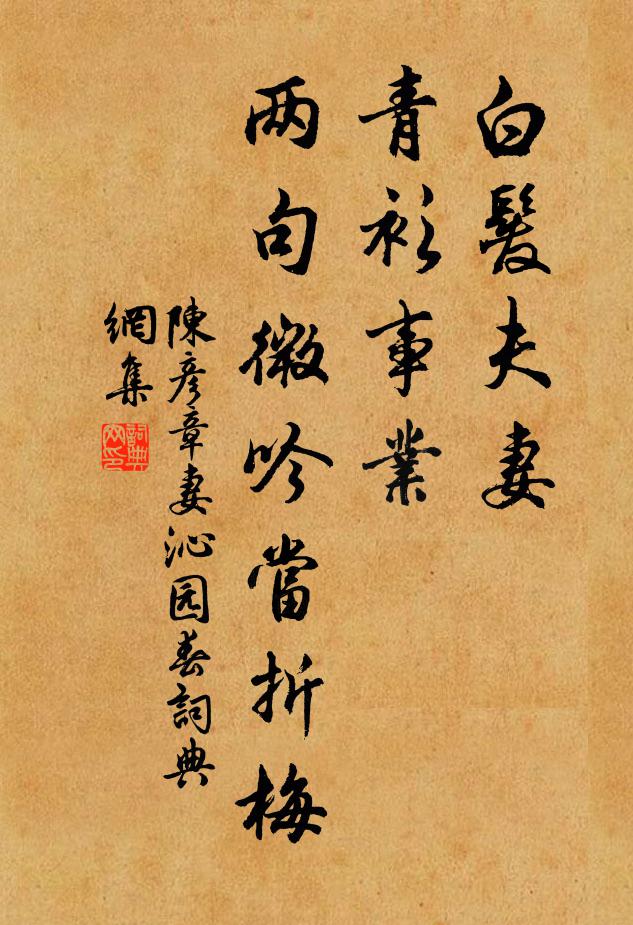 白髮夫妻
青衫事業
两句微吟當折梅
陳彥章妻沁园春詞典
網集
詞典
网印